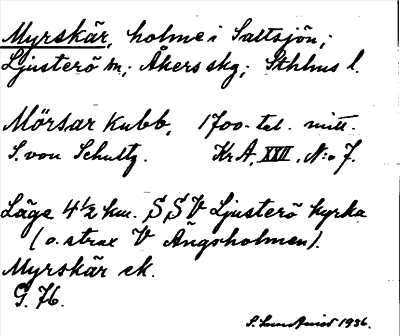 Myrskär, holme i Saltsjön;
Ljusterö sn; Åkers skg; Sthlms l.
Mörsar Kubb, 1700-tal. mitt.
S. von Schultz. KrA, XXII, N:o 7.
Läge 4½ km. SSV Ljusterö kyrka
(o. strax V Ängsholmen).
Myrskär ek.
G. 76.
S. 1936.